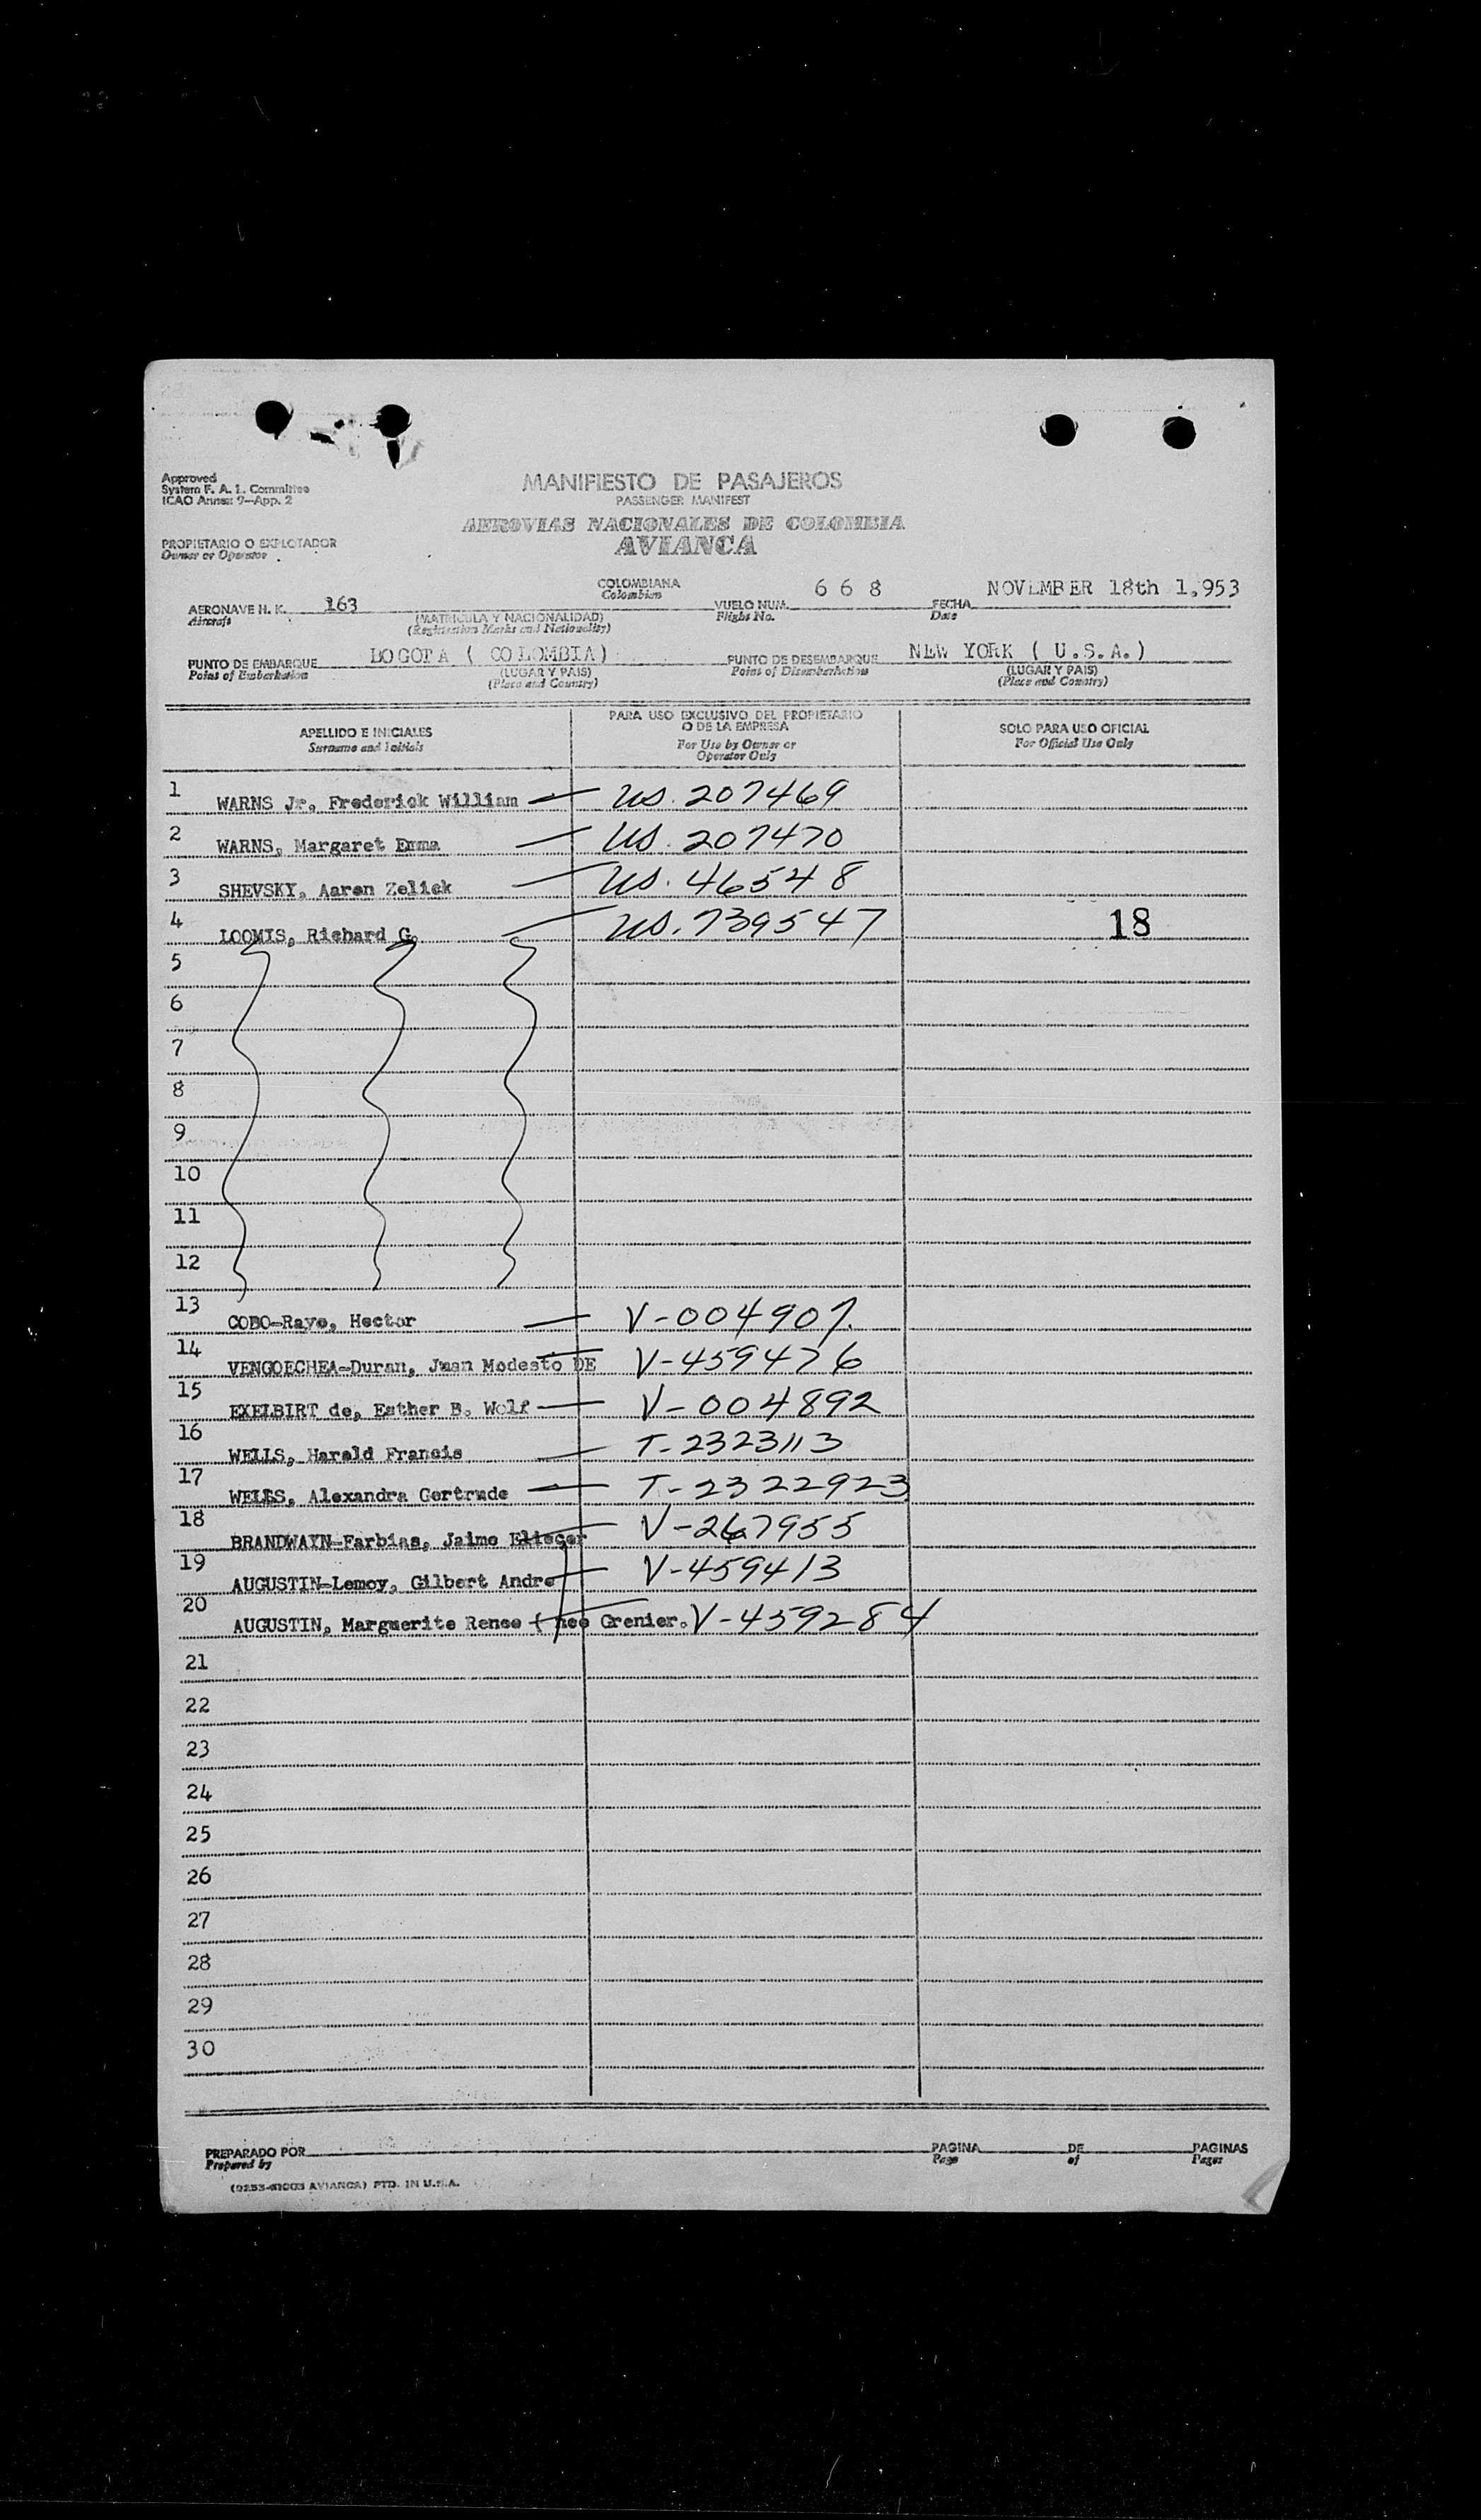 Approved
System F. A. L. Committee
ICAO Annex 9-App. 2
MANIFIESTO DE PASAJEROS
PASSENGER MANIFEST
AEROVIAS NACIONALES DE COLOMBIA
AVIANCA
PROPIETARIO O EXPLOTADOR
Owner or Operator
COLOMBIANA
Colombian
AERONAVE H. K. 163
Aircraft
(MATRICULA Y NACIONALIDAD)
(Registration Marks and Nationality)
VUELO NUM. 6 6 8
Flight No.
FECHA NOVEMBER 18th 1,953
Date
PUNTO DE EMBARQUE BOGOTA ( COLOMBIA)
Point of Embarkation
(LUGAR Y PAIS)
(Place and Country)
PUNTO DE DESEMBARQUE NEW YORK ( U.S.A.)
Point of Disembarkation
(LUGAR Y PAIS)
(Place and Country)
APELLIDO E INICIALES
Surname and Initials
PARA USO EXCLUSIVO DEL PROPIETARIO
O DE LA EMPRESA
For Use by Owner or
Operator Only
SOLO PARA USO OFICIAL
For Official Use Only
1 WARNS Jr, Frederick William — US. 207469
2 WARNS, Margaret Emma — US. 207470
3 SHEVSKY, Aaron Zelick — US. 46548
4 LOOMIS, Richard G. — US. 739547 18
5
6
7
8
9
10
11
12
13 COBO-Rayo, Hector — V-004907.
14 VENGOECHEA-Duran, Juan Modesto DE V-459476
15 EXELBIRT de, Esther B. Wolf — V-004892
16 WELLS, Harold Francis — T-2323113
17 WELLS, Alexandra Gertrude — T-2322923
18 BRANDWAYN-Farbias, Jaime Elieser V-267955
19 AUGUSTIN-Lemoy, Gilbert Andre — V-459413
20 AUGUSTIN, Marguerite Renee ( nee Grenier. V-459284
21
22
23
24
25
26
27
28
29
30
PREPARADO POR
Prepared by
PAGINA DE PAGINAS
Page of Pages
AVIANCA) PTD. IN U.S.A.